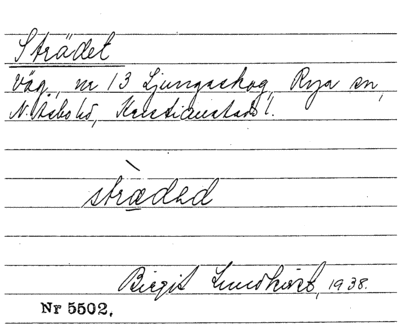 Strädet
väg, nr 13 Ljungaskog, Rya sn,
N. Åsbo hd, Kristianstads l.
stræ̀ded
Birgit Lundkvist, 1938.
Nr 5502.